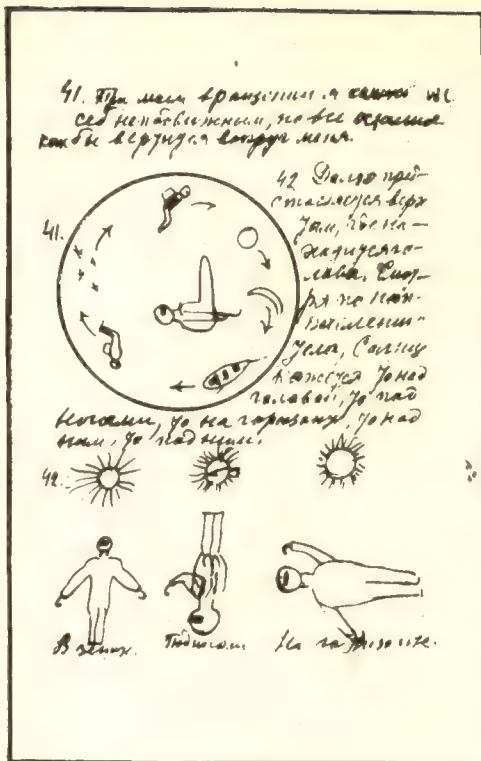 41. При моем вращении я
себе неподвижным, но все
как бы вертится вокруг меня.
42 Долго пред-
ставляется верх
там, где на-
ходится го-
лова. Смот-
ря по нап-
равлению
тела, Солнце
кажется то над
головой, то под
ногами, то на горизонте, то над
ним, то под ним.
41.
42.
В зените. Под ногами. На горизонте.